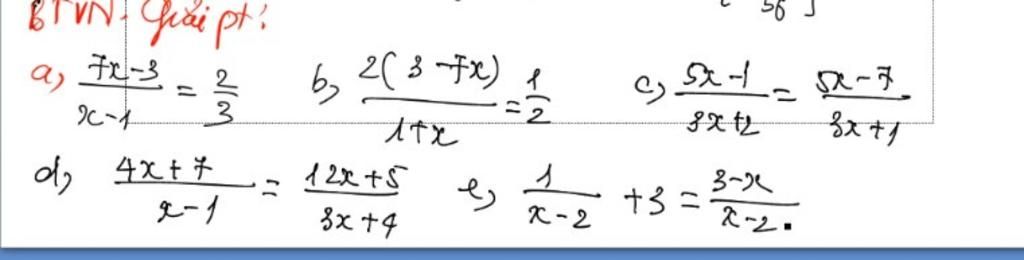 56 ]
BTVN. Giải pt:
a, 7x-3/x-1 = 2/3 b, 2(3-7x)/1+x = 1/2 c, 5x-1/3x+2 = 5x-7/3x+1
d, 4x+7/x-1 = 12x+5/3x+4 e, 1/x-2 +3 = 3-x/x-2.